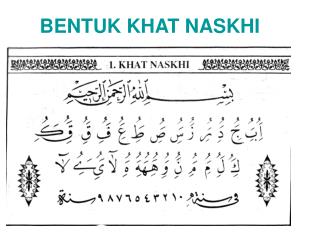 BENTUK KHAT NASKHI
1. KHAT NASKHI
بسم الله الرحمن الرحيم
ا ب ج د ر س ص ط ع ف ق ك
ك ل م ن و ه لا ي لا
في سنة ٩٨٧٦٥٤٣٢١٠ سنة